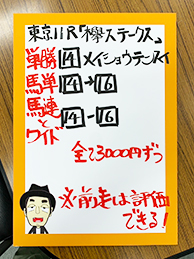 東京11R「欅ステークス」
単勝 14 メイショウテンスイ
馬単 14→16
馬連とワイド 14-16
全て3000円ずつ
※前走は評価
できる!